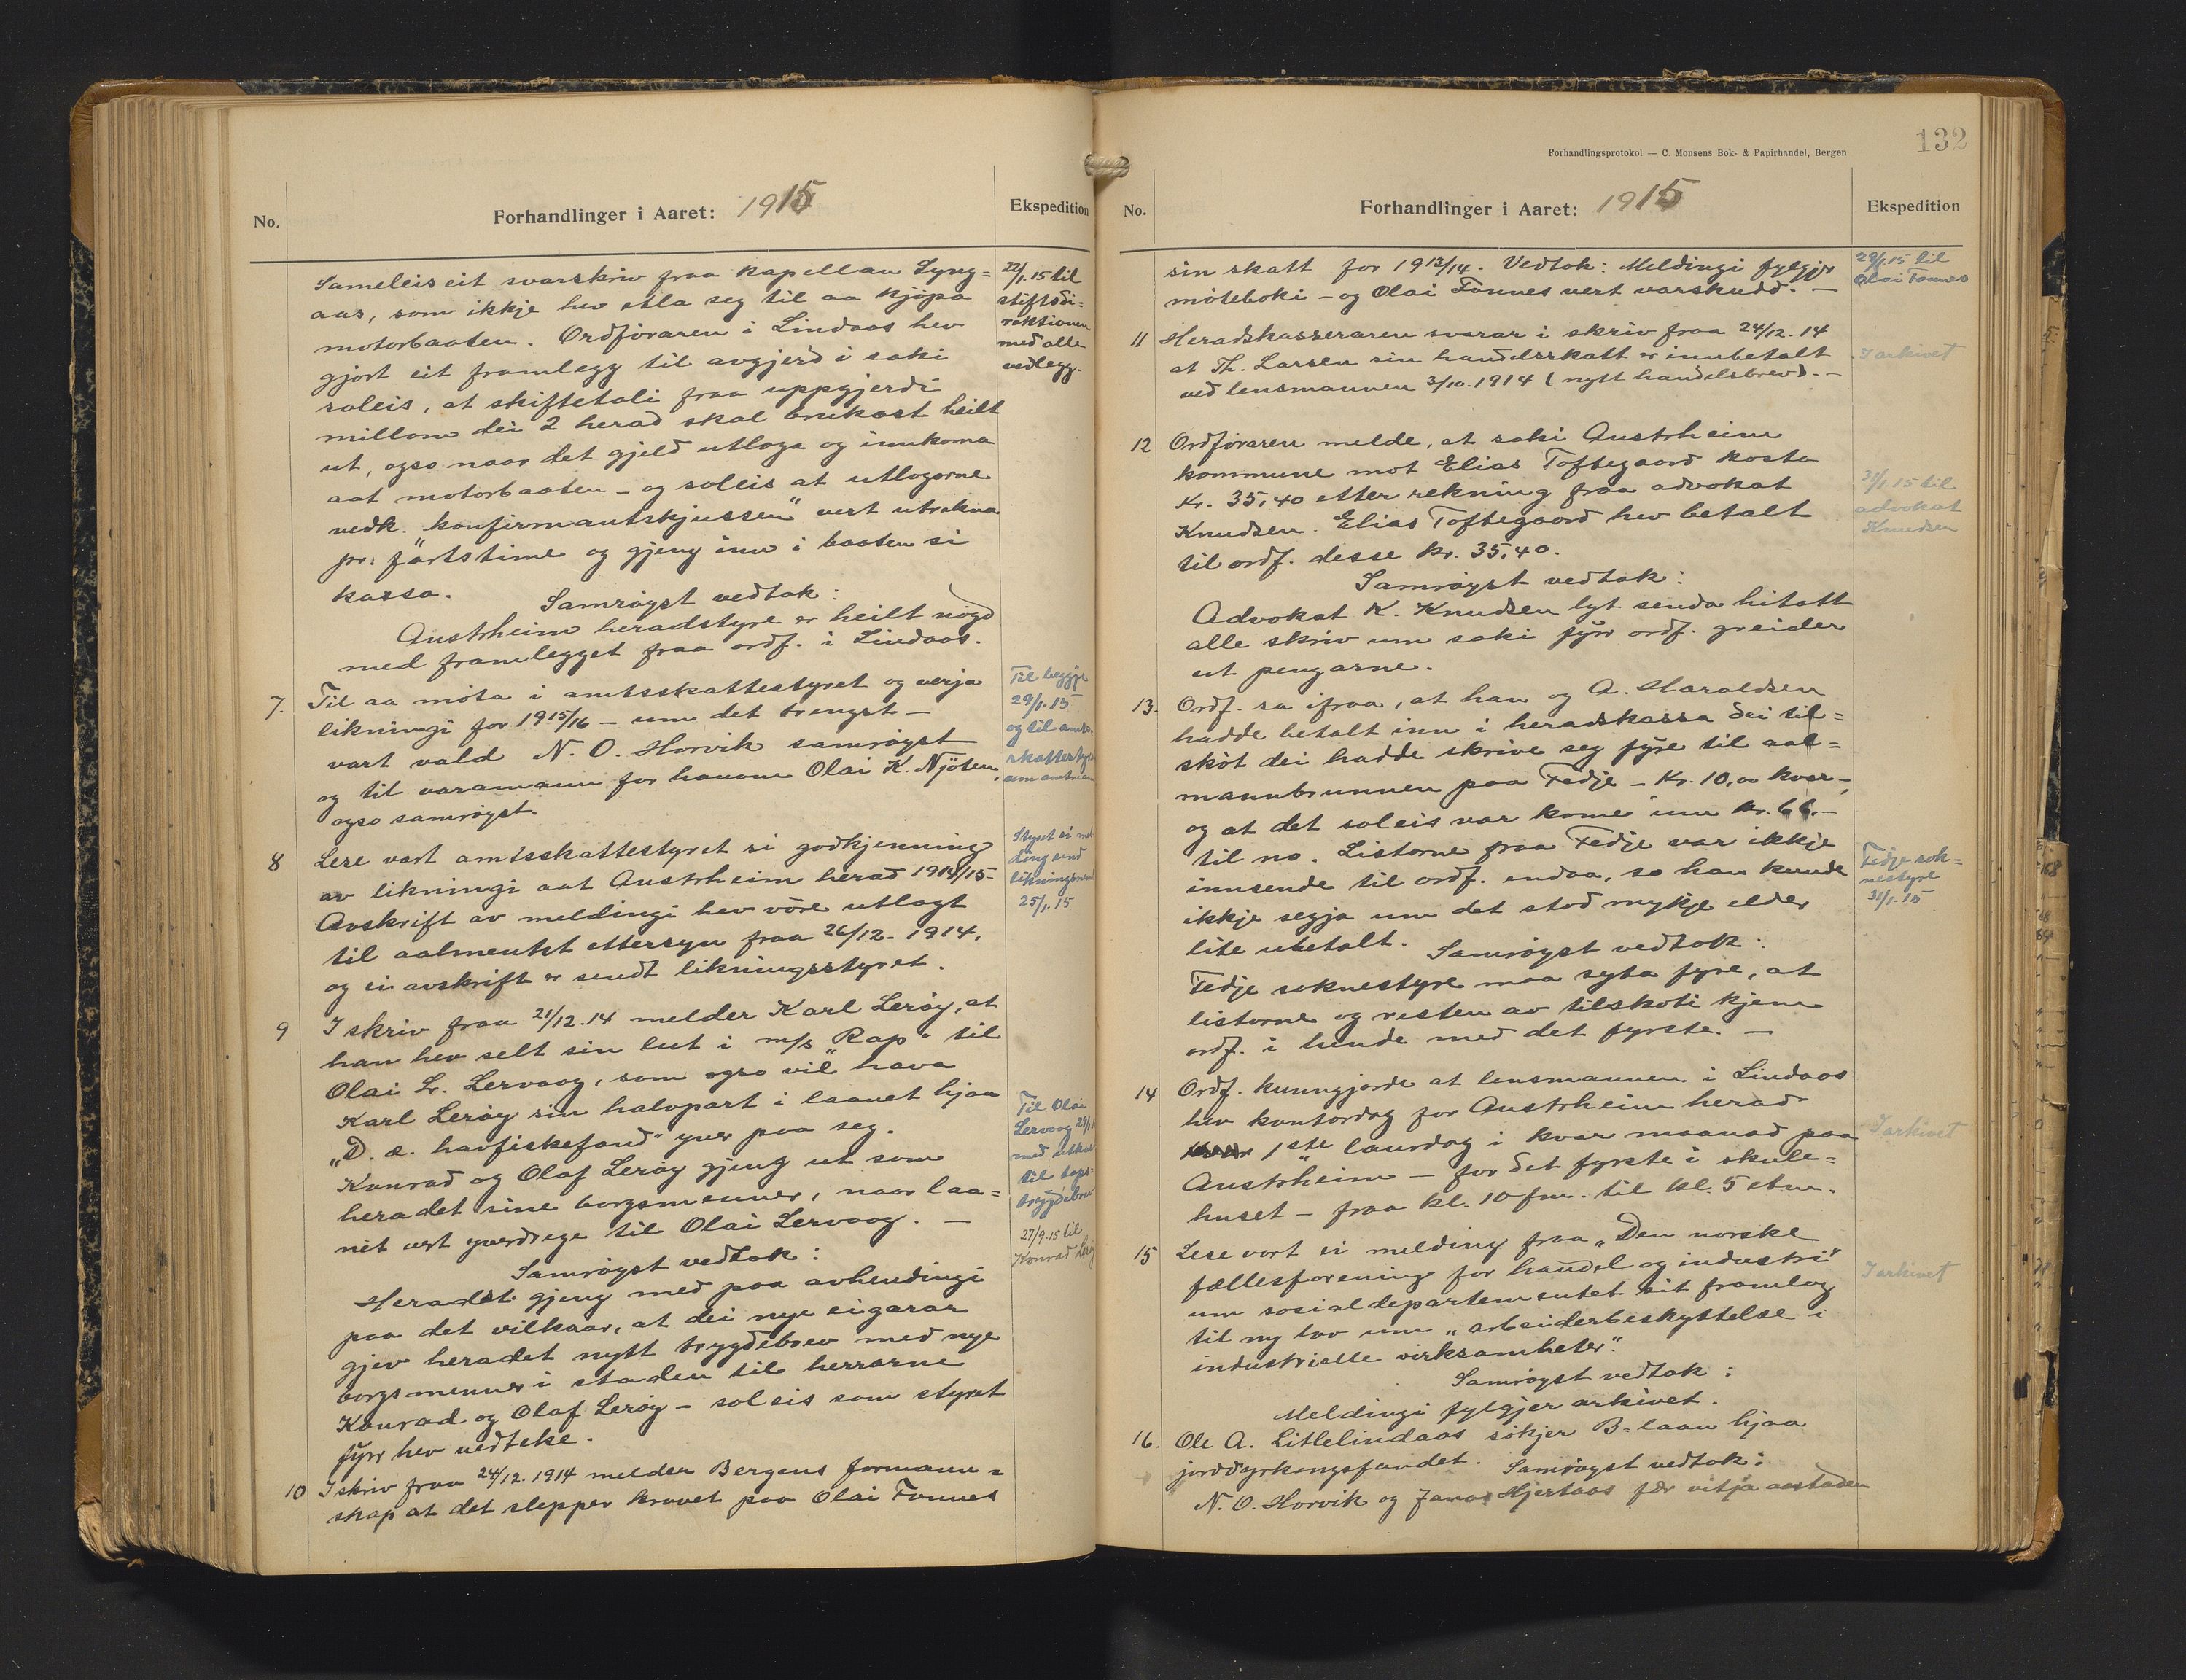 No.
Forhandlinger i Aaret: 1915
Ekspedition
Sameleis eit svarskriv fraa kapellan Lyng=
aas, som ikkje hev etla seg til aa kjøpa
motorbaaten. Ordføraren i Lindaas hev
gjort eit framlegg til avgjerd i saki
soleis, at skiftetali fraa uppgjerdi
millom dei 2 herad skal brukast heilt
ut, ogso naar det gjeld utloga og innkoma
aat motorbaaten - og soleis at utlogorne
vedk. "konfirmantskjussen" vert utrekna
pr. fartstime og gjeng inn i baaten si
kassa.
Samrøyst vedtak:
Austrheim heradstyre er heilt nøgd
med framlegget fraa ordf. i Lindaas.
22/1.15 til
stiftsdi=
rektionen
med alle
vedlegg.
7. Til aa møta i amtsskattestyret og verja
likningi for 1915/16 - um det trengst -
vart vald N. O. Horvik samrøyst
og til varamann for honom Olai K. Njøten,
ogso samrøyst.
Til beggje
29/1.15
og til amts-
8 Lese vart amtsskattestyret si godkjenning
av likningi aat Austrheim herad 1914/15-
Avskrift av meldingi hev vore utlagt
til aalmenkt ettersyn fraa 26/12. 1914,
og ei avskrift er sendt likningsstyret.
25/1.15
9 I skriv fraa 21/12.14 melder Karl Lerøy, at
han hev selt sin lut i m/s "Rap" til
Olai L. Lervaag, som ogso vil hava
Karl Lerøy sin halvpart i laanet hjaa
"D. æ. havfiskefond" yver paa seg.
Konrad og Olaf Lerøy gjeng ut som
heradet sine borgsmenner, naar laa=
net vert yverdrege til Olai Lervaag. -
Samrøyst vedtak:
Heradet gjeng med paa avhendingi
paa det vilkaar, at dei nye eigarar
gjev heradet nytt trygdebrev med nye
borgsmenner i staden til herrarne
Konrad og Olaf Lerøy - soleis som styret
fyrr hev vedteke.
Til Olai
Lervaag 29/1
27/9.15 til
Konrad Lerøy
10 I skriv fraa 24/12. 1914 melder Bergens formann=
skap at det slepper kravet paa Olai Fonnes
132
Forhandlingsprotokol — C. Monsens Bok- & Papirhandel, Bergen
No.
Forhandlinger i Aaret: 1915
Ekspedition
sin skatt for 1913/14. Vedtok: Meldingi fylgjer
møteboki - og Olai Fonnes vert varskudd. -
29/1.15 til
Olai Fonnes
11 Heradskasseraren svarar i skriv fraa 24/12. 14
at Th. Larsen sin handelsskatt er innbetalt
ved lensmannen 3/10.1914 (nytt handelsbrev). -
I arkivet
12 Ordføraren melde, at saki Austrheim
kommune mot Elias Toftegaard kosta
Kr. 35,40 etter rekning fraa advokat
Knudsen. Elias Toftegaard hev betalt
til ordf. desse kr. 35,40.
Samrøyst vedtak:
Advokat K. Knudsen lyt senda hitatt
alle skriv um saki fyrr ordf. greider
ut pengarne.
31/1.15 til
advokat
Knudsen
13. Ordf. sa ifraa, at han og A. Haraldsen
hadde betalt inn i heradskassa dei til=
skot dei hadde skrive seg fyre til aal=
mannbrunnen paa Fedje - Kr. 10,00 kvar -,
og at det soleis var kome inn kr. 66,-
til no. Listorne fraa Fedje var ikkje
innsende til ordf. endaa, so han kunde
ikkje segja um det stod mykje elder
lite ubetalt. Samrøyst vedtok:
Fedje soknestyre maa syta fyre, at
listorne og resten av tilskoti kjem
ordf. i hende med det fyrste. -
Fedje sok=
nestyre
31/1.15
14 Ordf. kunngjorde at lensmannen i Lindaas
hev kontordag for Austrheim herad
1ste laurdag i kvar maanad paa
Austrheim - for det fyrste i skule=
huset - fraa kl. 10 fm. til kl. 5 etm.
I arkivet
15 Lese vart ei melding fraa "Den norske
fællesforening for handel og industri"
um sosialdepartementet sit framlag
til ny lov um "arbeiderbeskyttelse i
industrielle virksamheter."
Samrøyst vedtak:
Meldingi fylgjer arkivet.
I arkivet
16. Ole A. Litlelindaas søkjer B-laan hjaa
jorddyrkingsfondet. Samrøyst vedtak:
N. O. Horvik og Jonas Hjertaas fær vitja aastaden